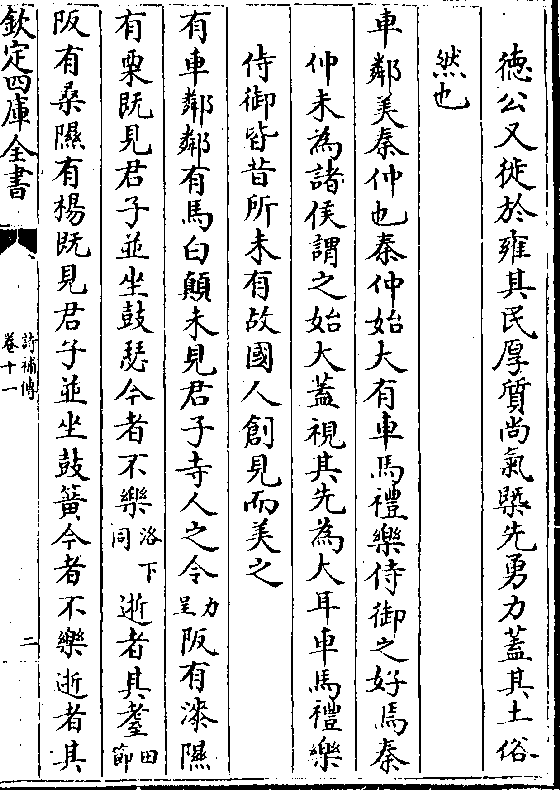 德公又徙於雍其民厚質尚氣槩先勇力蓋其土俗
然也
車鄰美秦仲也秦仲始大有車馬禮樂侍御之好焉秦
仲未為諸侯謂之始大蓋視其先為大耳車馬禮樂
侍御皆昔所未有故國人創見而美之
有車鄰鄰有馬白顛未見君子寺人之令力呈阪有漆隰
有栗既見君子並坐鼓瑟今者不樂洛下同逝者其耋田節
阪有桑隰有楊既見君子並坐鼓簧今者不樂逝者其
欽定四庫全書
詩補傳
卷十一
二